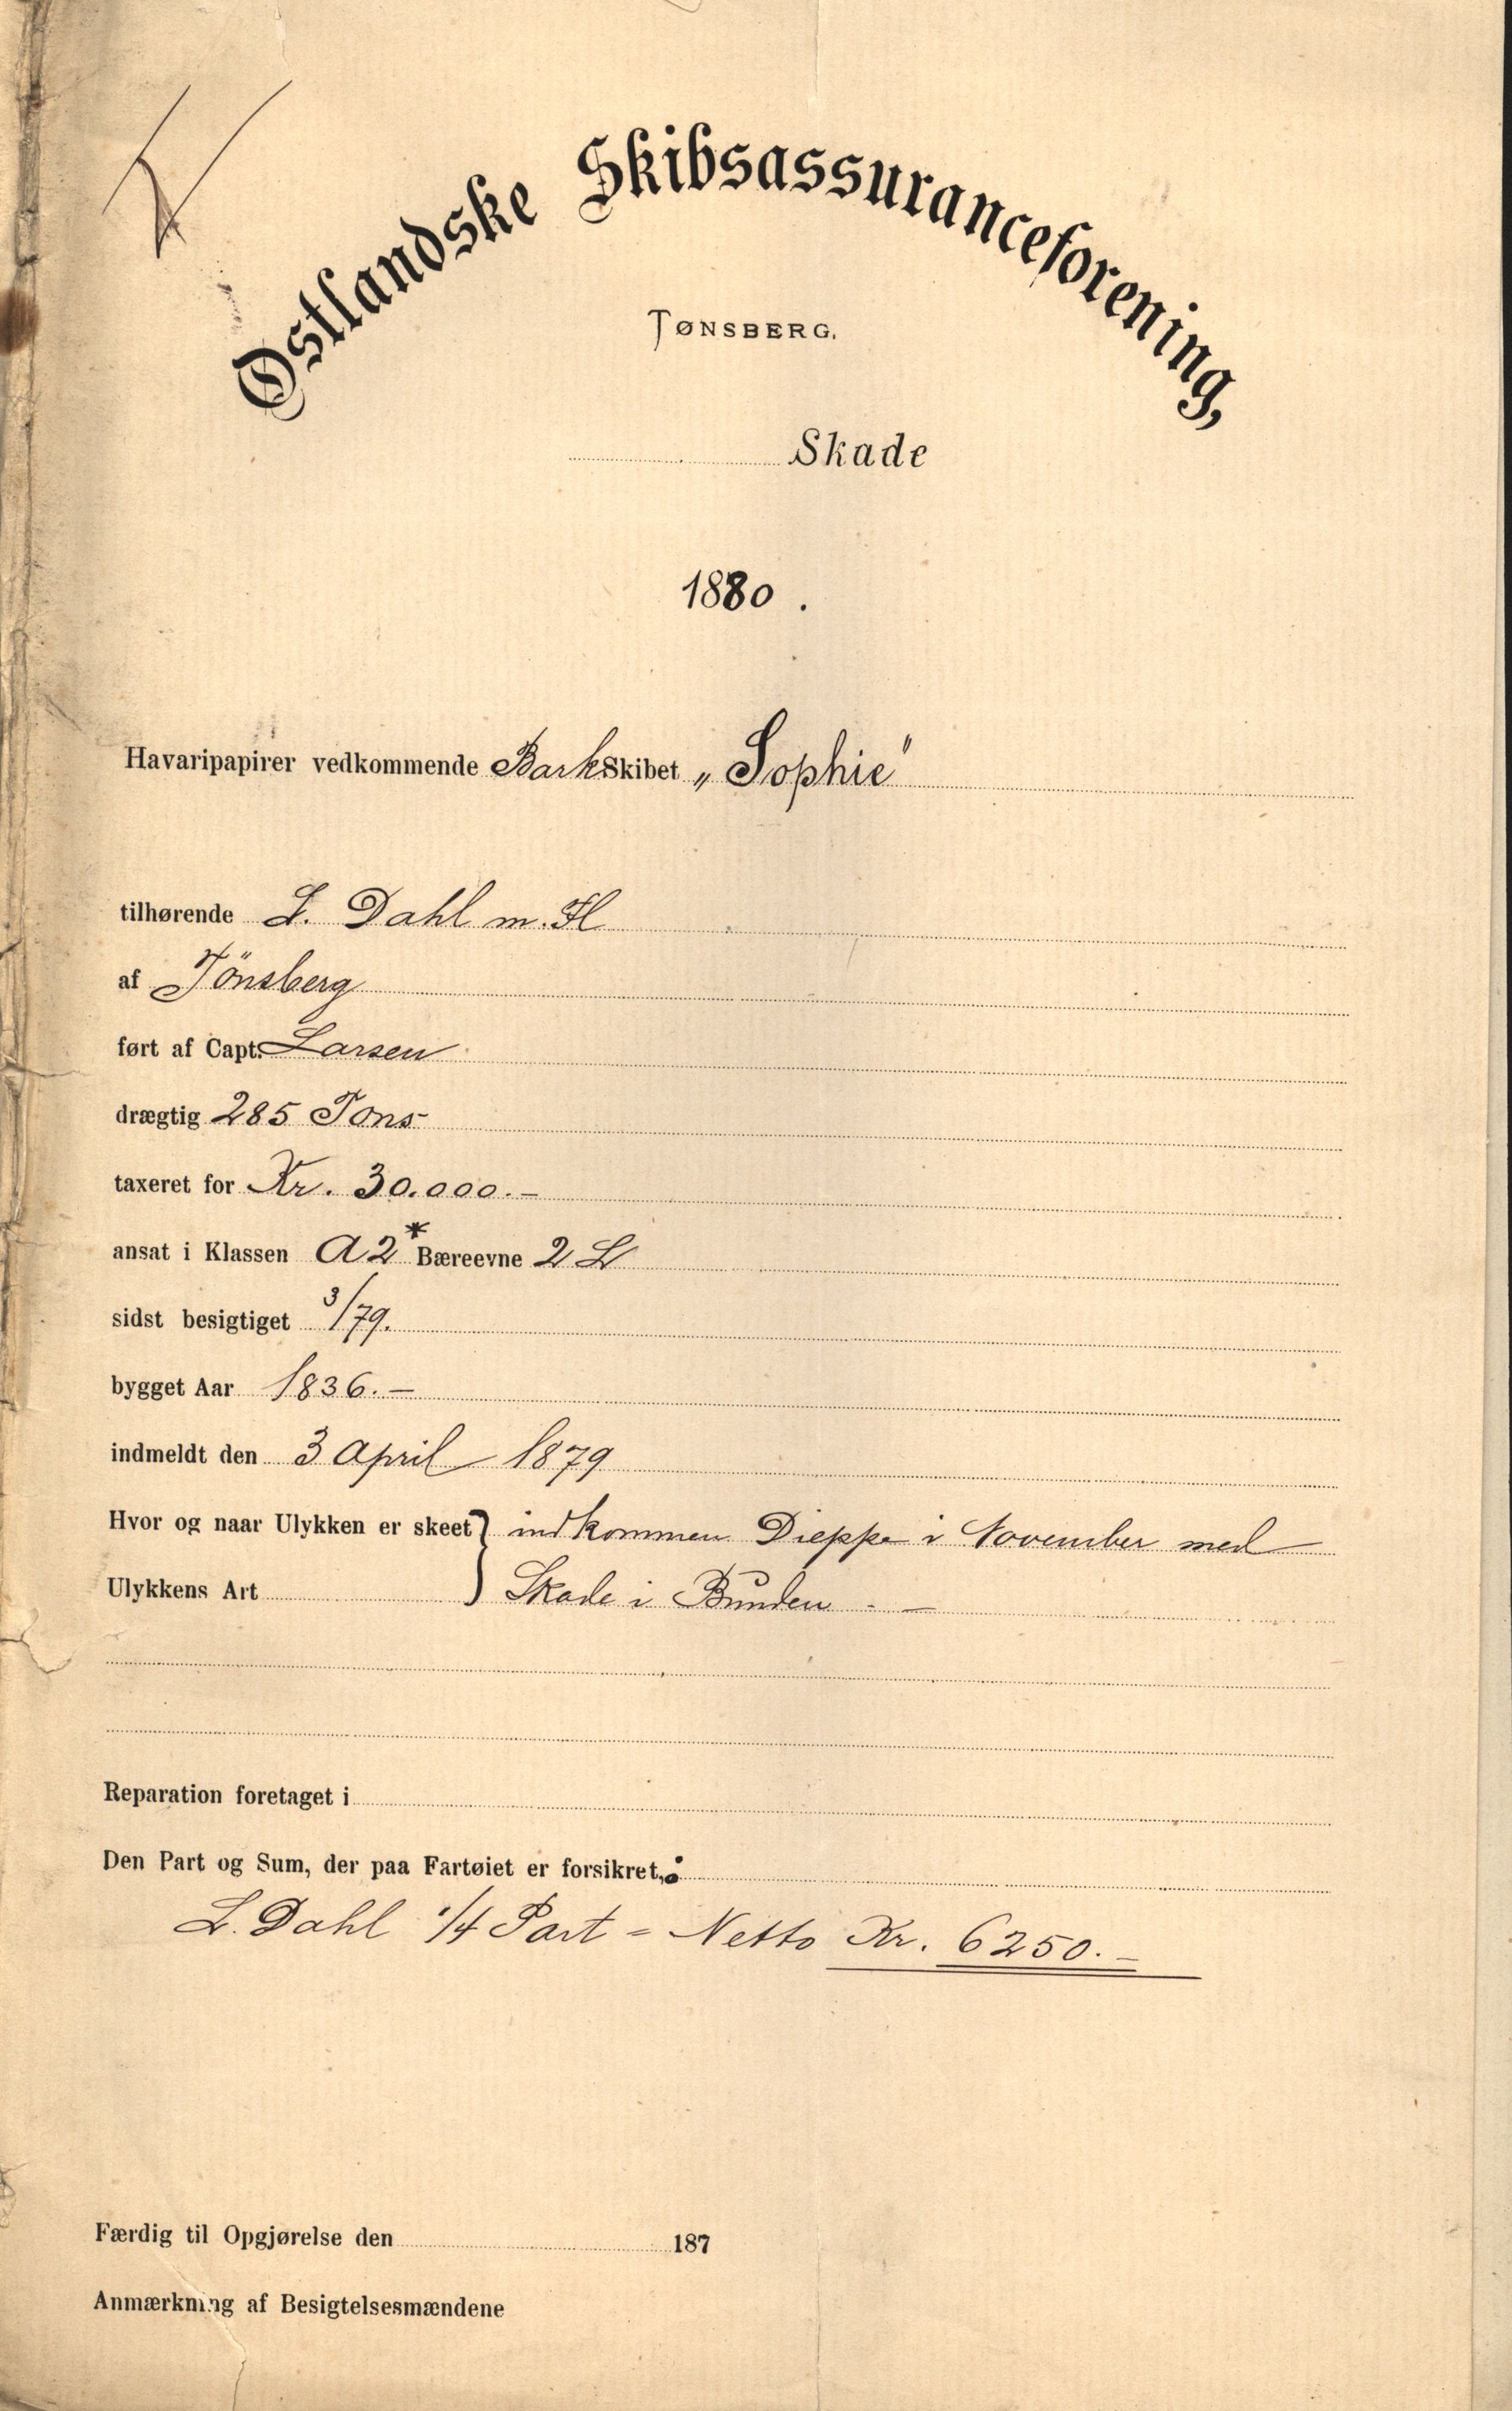 Østlandske Skibsassuranceforening,
TØNSBERG.
Skade
1880.
Havaripapirer vedkommende Bark Skibet „Sophie"
tilhørende L. Dahl m. Fl
af Tönsberg
ført af Capt. Larsen
drægtig 285 Tons
taxeret for Kr. 30.000.-
ansat i Klassen A2* Bæreevne 2 L
sidst besigtiget 3/79.
bygget Aar 1836.-
indmeldt den 3 April 1879
Hvor og naar Ulykken er skeet } indkommen Dieppe i November med
Ulykkens Art } Skade i Bunden. -
Reparation foretaget i
Den Part og Sum, der paa Fartøiet er forsikret,:
L. Dahl 1/4 Part = Netto Kr. 6250.-
Færdig til Opgjørelse den 187
Anmærkning af Besigtelsesmændene